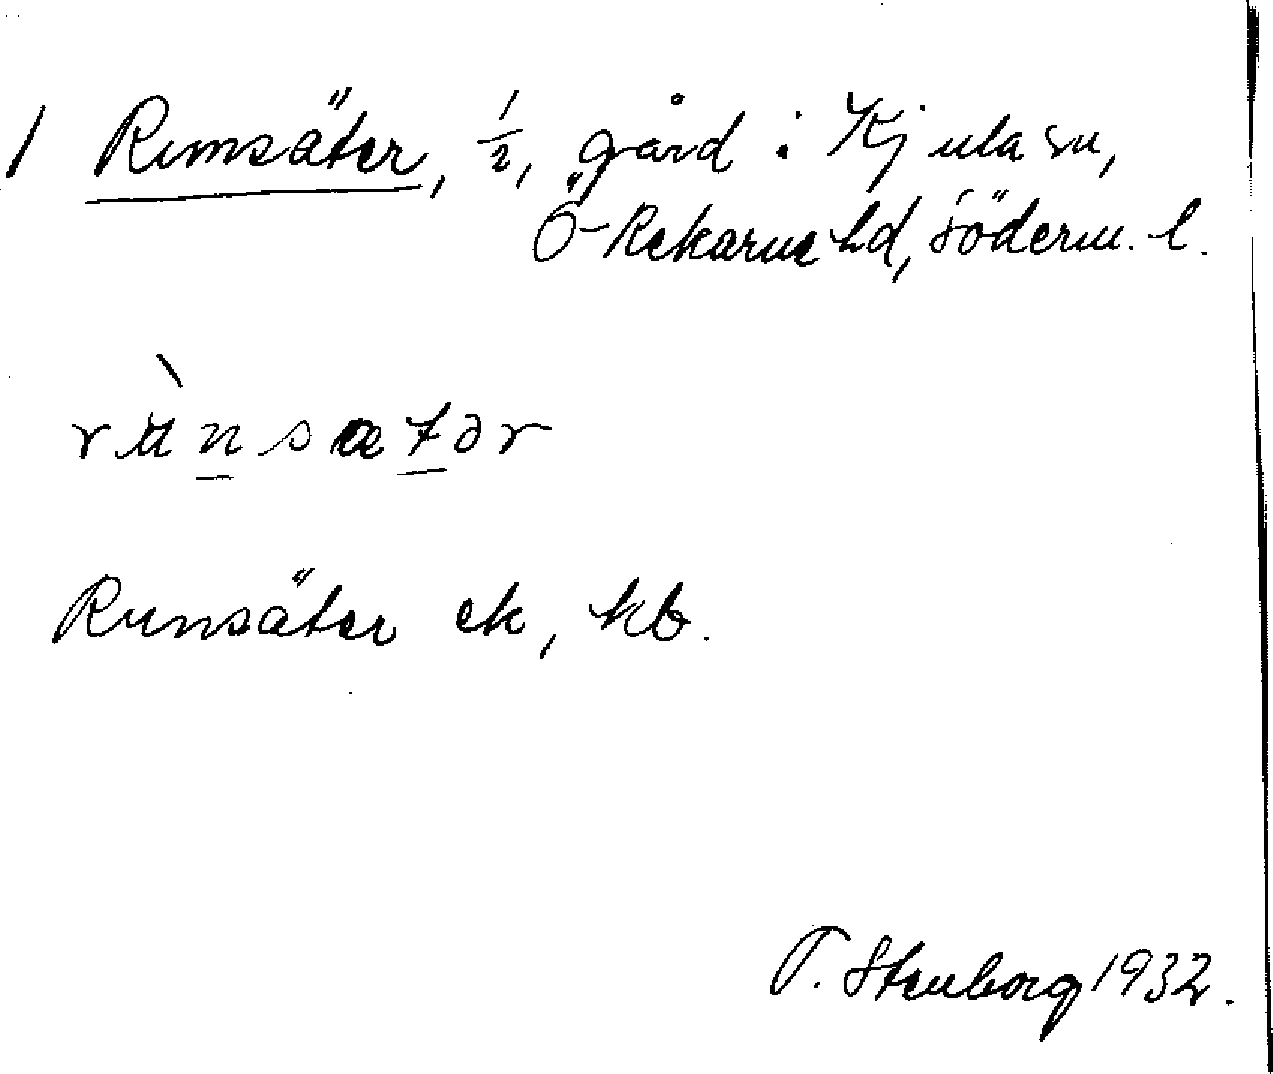 1 Runsäter, 1/2, gård i Kjula sn,
Ö-Rekarne hd, Söderm. l.
rùnsætər
Runsäter ek, kb.
T. Stenborg 1932.